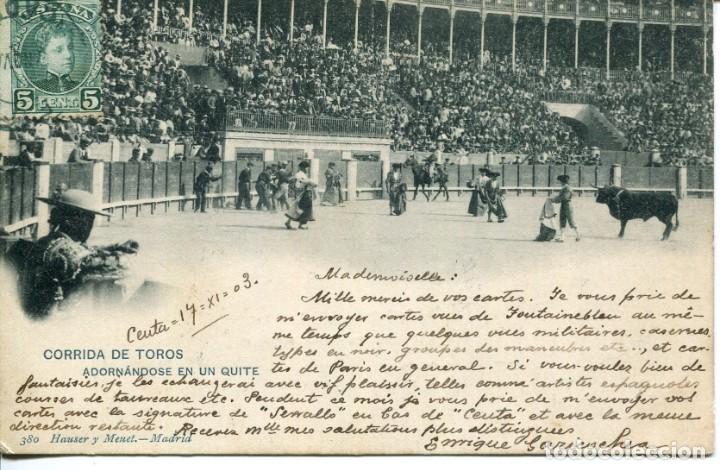 ESPAÑA
5 CENT 5
Mademoiselle:
Ceuta = 17 = XI = 03.
Mille mercis de vos cartes. Je vous prie de
m'envoyer cartes vues de Fontainebleau au mê-
me temps que quelques vues militaires, casernes
types en noir, groupes des manoeubres etc.., et car-
CORRIDA DE TOROS
tes de Paris en general. Si vous voulez bien de
ADORNÁNDOSE EN UN QUITE
fantaisies je les echangerai avec vif plaissir, telles comme artistes espagnoles
courses de taureaux etc. Pendent ce mois ja vous prie de m'envoyer vos
cartes avec la signature de "Serrallo" en bas de "Ceuta" et avec la meme
direction restante. Recevez Mlle mes salutations plus distinguees
380 Hauser y Menet.—Madrid
Enrique